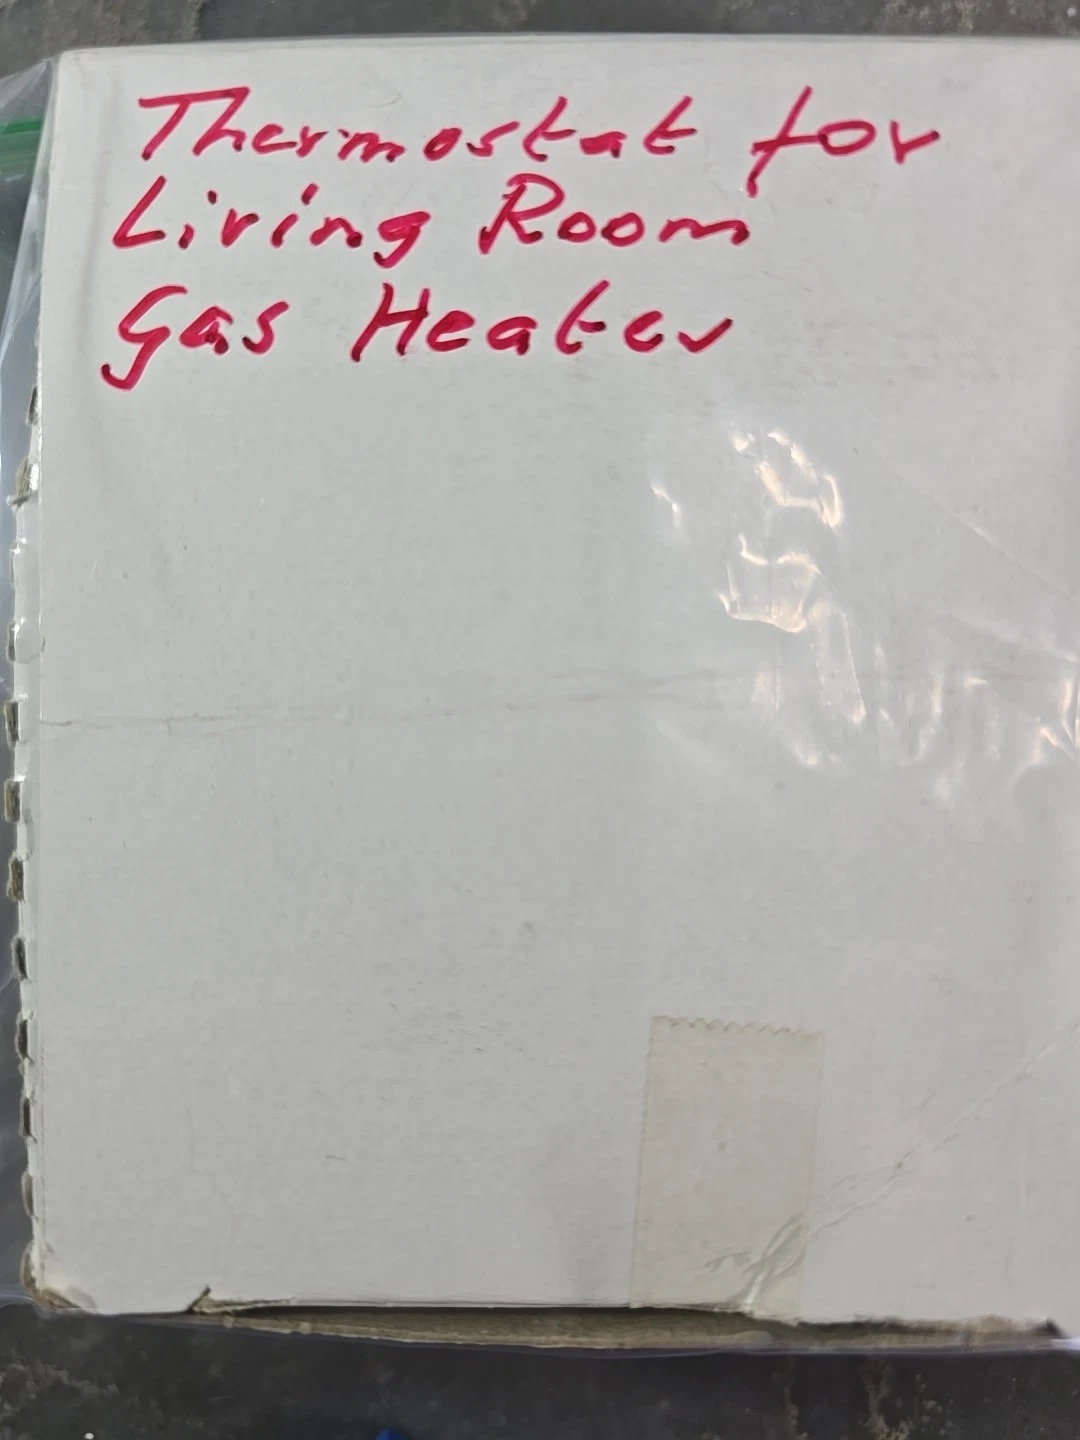 Thermostat for
Living Room
Gas Heater